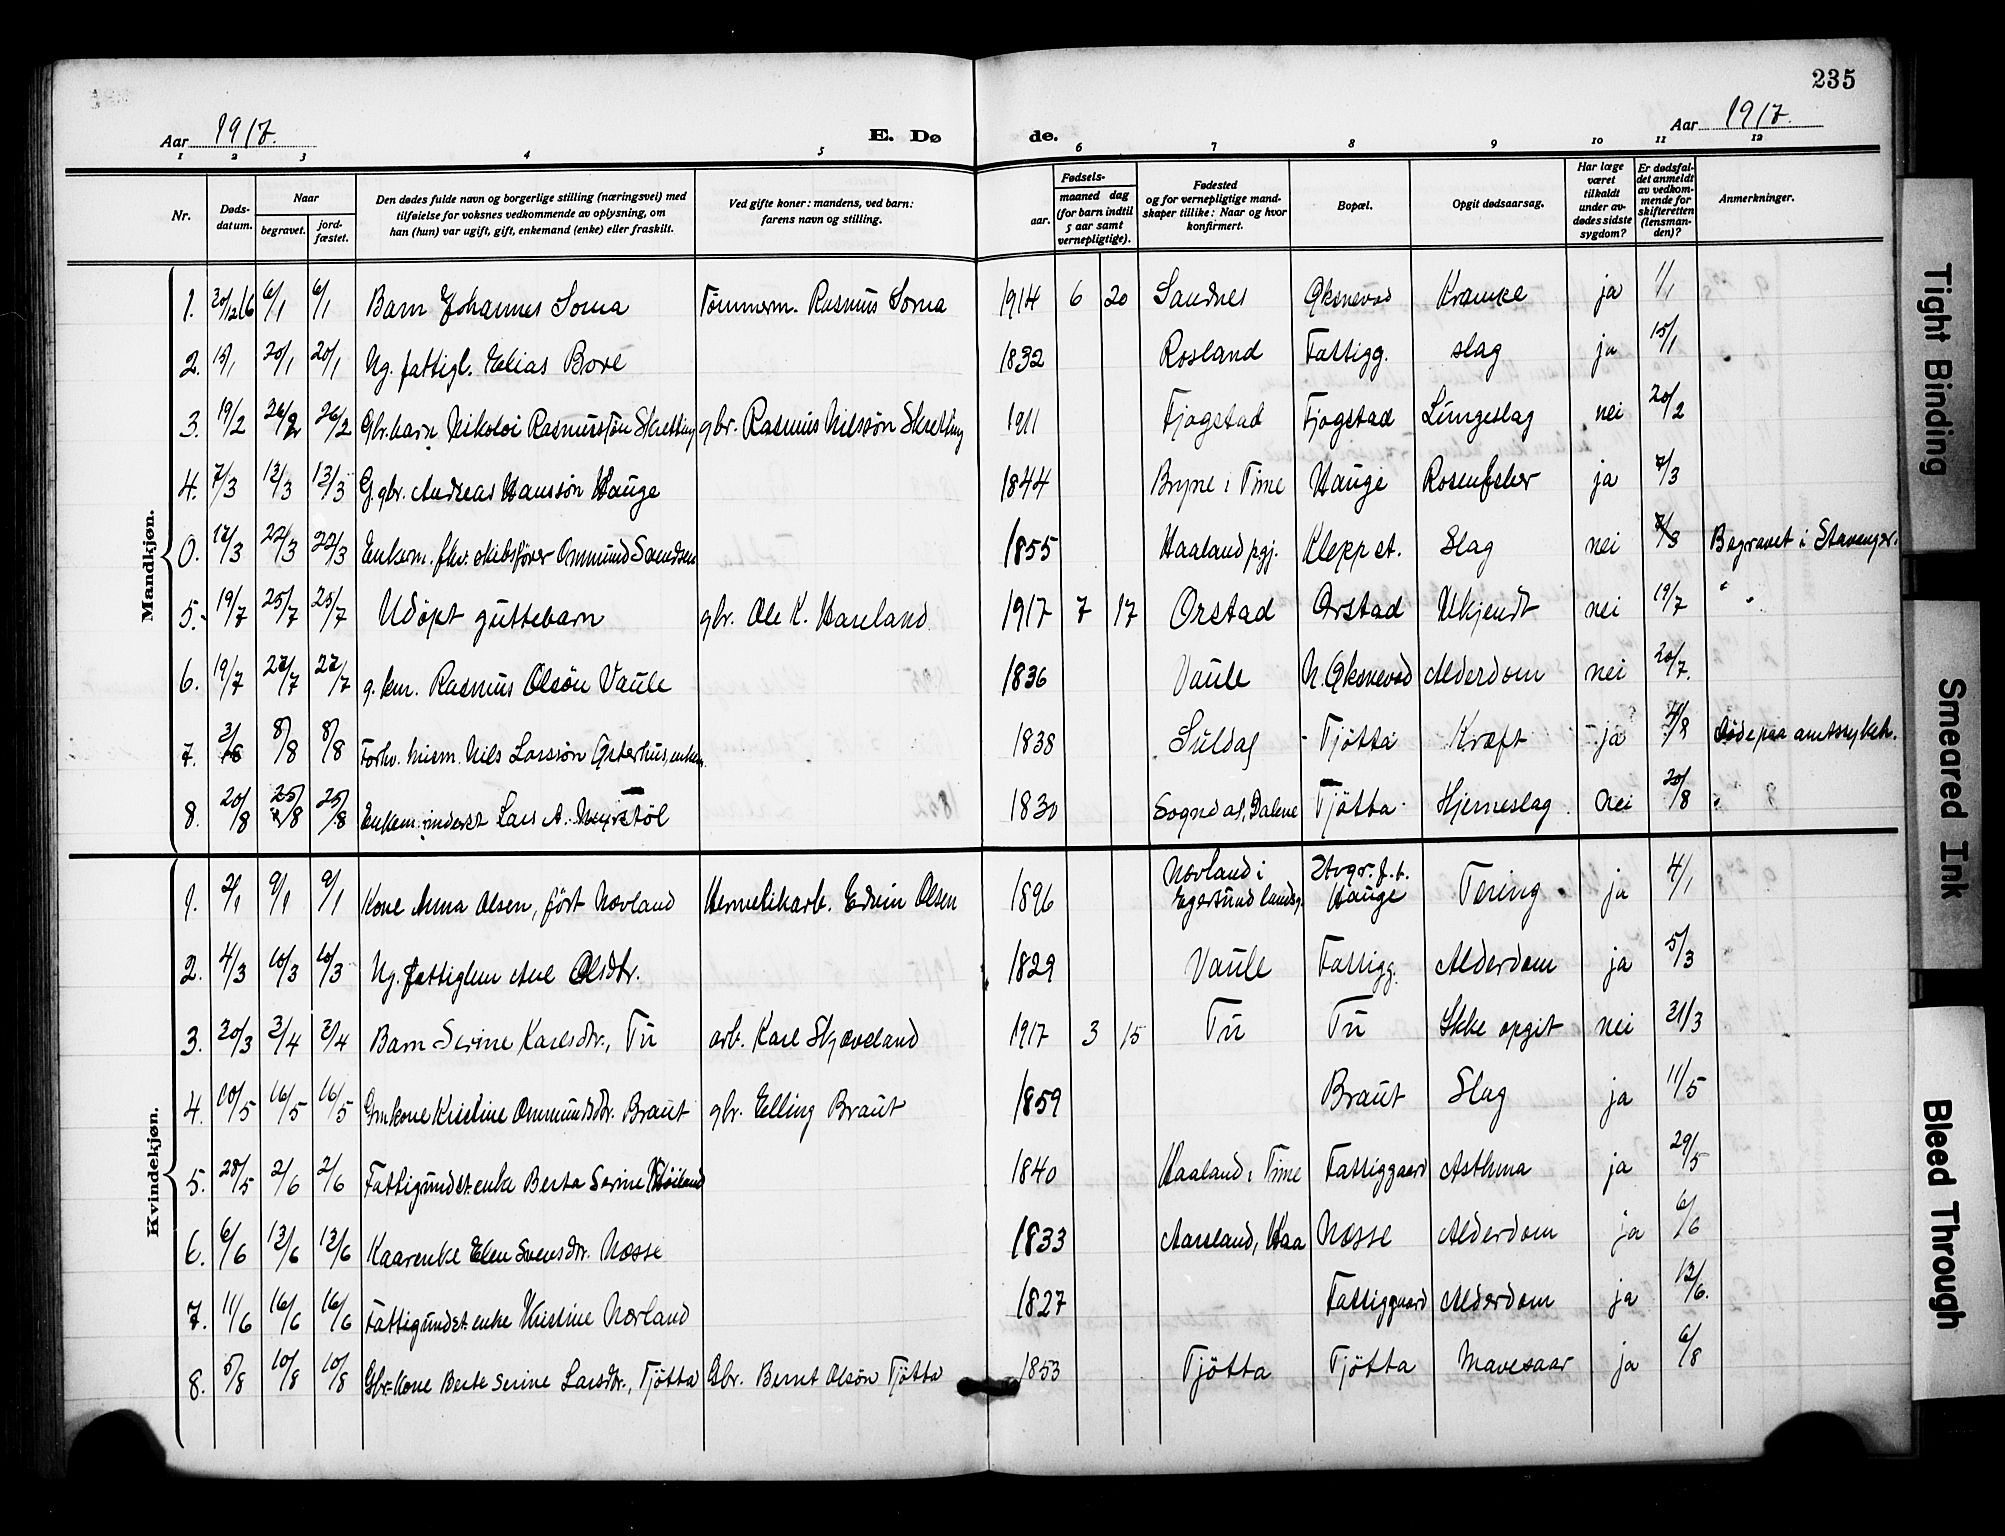 235
Aar 1917. E. Dø de. Aar 1917.
1 2 3 4 5 6 7 8 9 10 11 12
Nr.
Døds-
datum.
Naar
begravet.
jord-
fæstet.
Den dødes fulde navn og borgerlige stilling (næringsvei) med
tilføielse for voksnes vedkommende av oplysning, om
han (hun) var ugift, gift, enkemand (enke) eller fraskilt.
Ved gifte koner: mandens, ved barn:
farens navn og stilling.
Fødsels-
aar.
maaned dag
(for barn indtil
5 aar samt
vernepligtige).
Fødested
og for vernepligtige mand-
skaper tillike: Naar og hvor
konfirmert.
Bopæl.
Opgit dødsaarsag.
Har læge
været
tilkaldt
under av-
dødes sidste
sygdom?
Er dødsfal-
det anmeldt
av vedkom-
mende for
skifteretten
(lensman-
den)?
Anmerkninger.
Mandkjøn.
1. 30/12 16 6/1 6/1 Barn Johannes Soma Tømmerm. Rasmus Soma 1914 6 20 Sandnes Øksnevad Krampe ja 1/1
2. 15/1 20/1 20/1 Ug. fattigl. Elias Bore 1832 Rosland Fattigg. slag ja 15/1
3. 19/2 26/2 26/2 Gbr. barn Nikolai Rasmussøn Skretting gbr. Rasmus Nilssøn Skretting 1911 Fjogstad Fjogstad Lungeslag nei 20/2
4. 7/3 13/3 13/3 G. gbr. Andreas Hanssøn Hauge 1844 Bryne i Time Hauge Rosenfeber ja 7/3
0. 17/3 22/3 22/3 Enkem. fhv. skibsfører Ommund Svendsen 1855 Haaland pgj. Klepp st. Slag nei Begravet i Stavanger.
5. 19/7 25/7 25/7 Udøpt guttebarn gbr. Ole K. Haneland. 1917 7 17 Orstad Orstad Ukjendt nei 19/7 " "
6. 19/7 27/7 27/7 g. km. Rasmus Olsøn Vaule 1836 Vaule N. Øksnevad Alderdom nei 20/7.
7. 8/8 8/8 Forhv. Nils Larssøn enkem. 1838 Suldal Tjøtta Kræft ja Døde paa amtssykeh.
8. 20/8 25/8 25/8 Enkem. inderst Lars A. 1830 Sogndal, Dalene Tjøtta Hjerneslag nei 20/8
Kvindekjøn.
1. 2/1 9/1 9/1 Kone Anna Olsen, født Nevland Hermetikarb. Edvin Olsen 1896 Nevland i
Egersund landsg. Stvgr. f. t.
Hauge Tæring ja 4/1
2. 4/3 10/3 10/3 Ug. fattiglem Ane Olsdtr. 1829 Vaule Fattigg. Alderdom ja 5/3
3. 20/3 2/4 2/4 Barn Serine Karlsdtr., Tu arb. Karl Skjæveland 1917 3 15 Tu Tu Ikke opgit nei 31/3
4. 10/5 16/5 16/5 Gmkone Kristine Ommundsdtr. Braut gbr. Elling Braut 1859 Braut Slag ja 11/5
5. 28/5 2/6 2/6 Fattigundst. enke Berta Serine Høiland 1840 Haaland i Time Fattiggaard Asthma ja 29/5
6. 6/6 13/6 13/6 Kaarenke Elen Svensdtr. Næsse 1833 Aarsland, Haa Næsse Alderdom ja 6/6
7. 11/6 16/6 16/6 Fattigundst. enke Kristine Nærland 1827 Fattiggaard Alderdom ja 12/6.
8. 5/8 10/8 10/8 Gbr-kone Berte Serine Larsdtr., Tjøtta Gbr. Bernt Olsøn Tjøtta 1853 Tjøtta Tjøtta Mavesaar ja 6/8
Tight Binding
Smeared Ink
Bleed Through